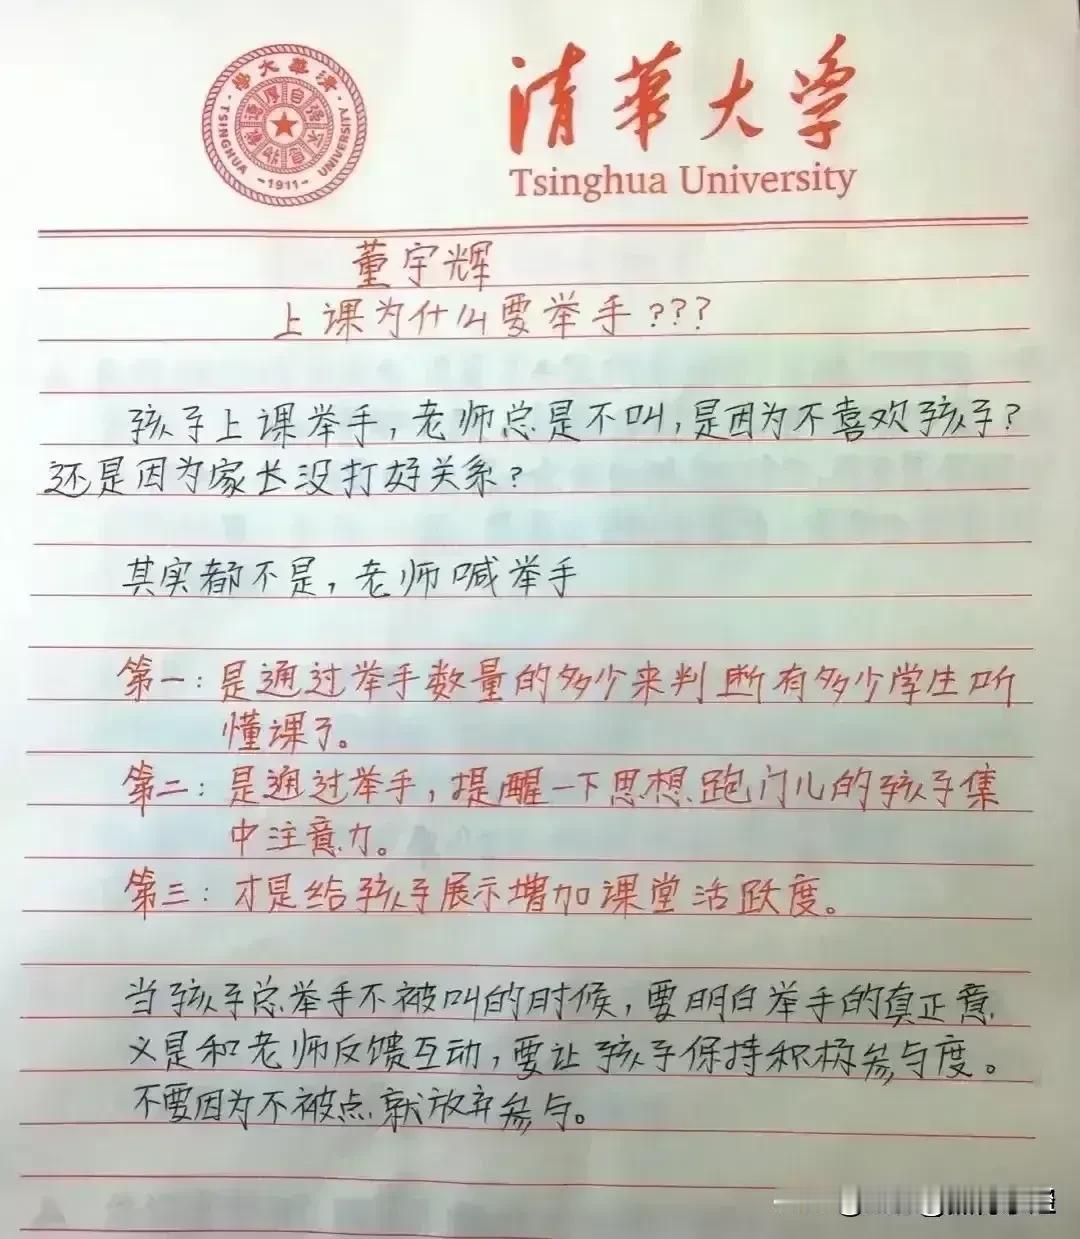 清華大学
Tsinghua University
TSINGHUA UNIVERSITY
-1911-
董宇辉
上课为什么要举手???
孩子上课举手,老师总是不叫,是因为不喜欢孩子?
还是因为家长没打好关系?
其实都不是,老师喊举手
第一:是通过举手数量的多少来判断有多少学生听
懂课了。
第二:是通过举手,提醒一下思想跑门儿的孩子集
中注意力。
第三:才是给孩子展示增加课堂活跃度。
当孩子总举手不被叫的时候,要明白举手的真正意
义是和老师反馈互动,要让孩子保持积极参与度。
不要因为不被点就放弃参与。